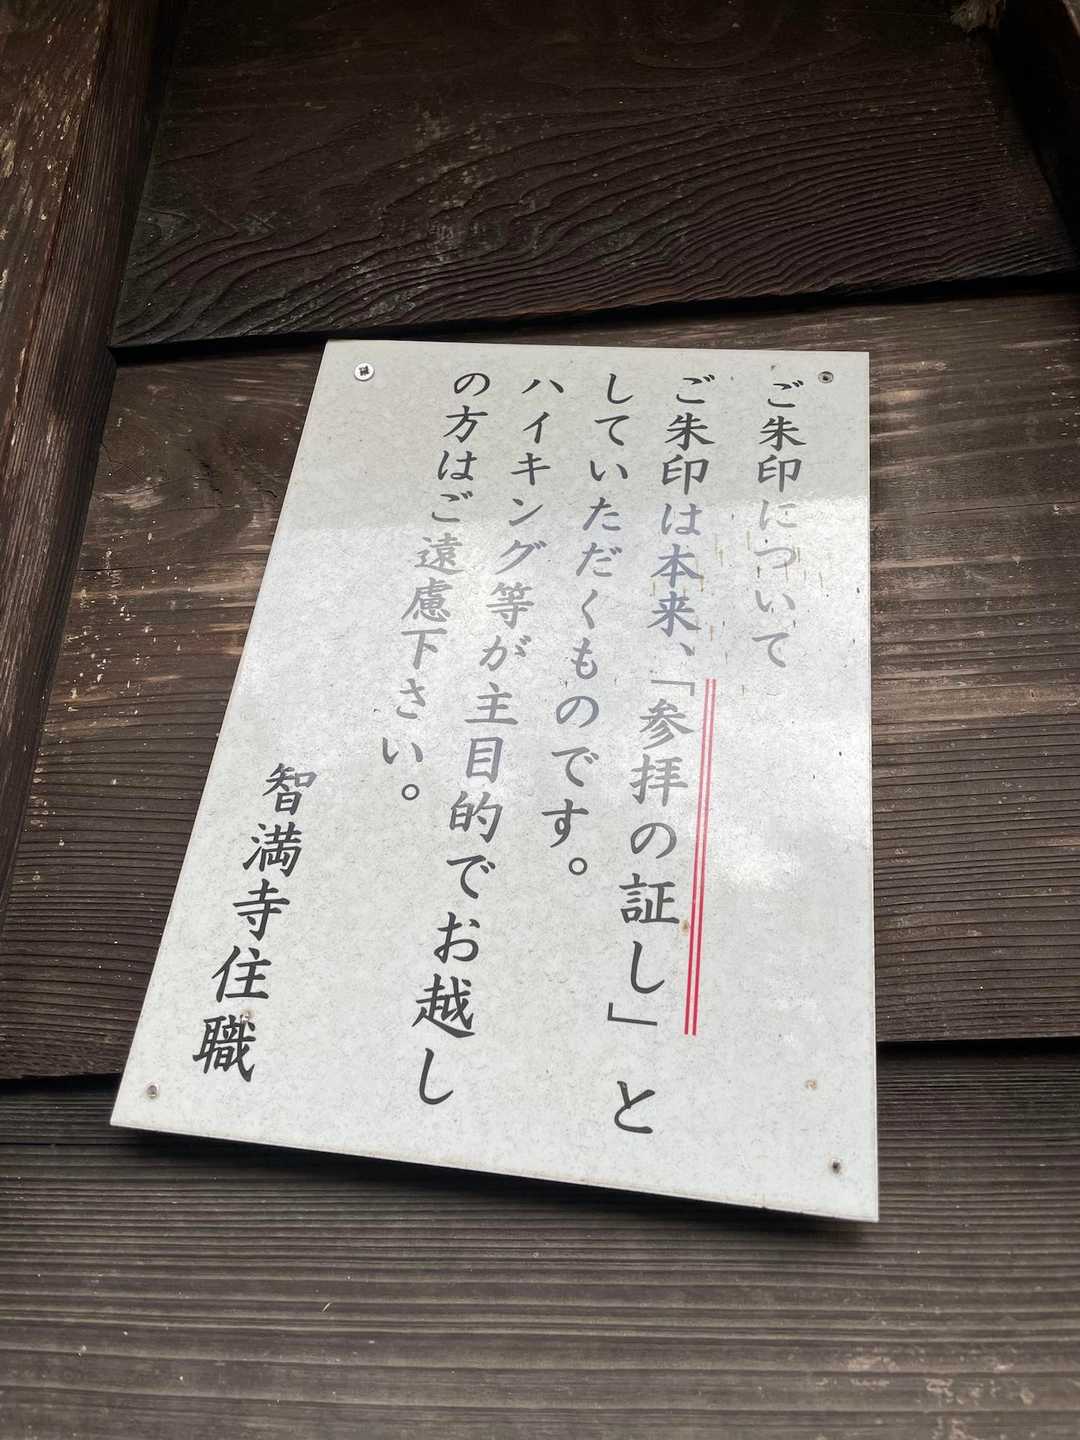 ご朱印について
ご朱印は本来、「参拝の証し」と
していただくものです。
ハイキング等が主目的でお越し
の方はご遠慮下さい。
智満寺住職